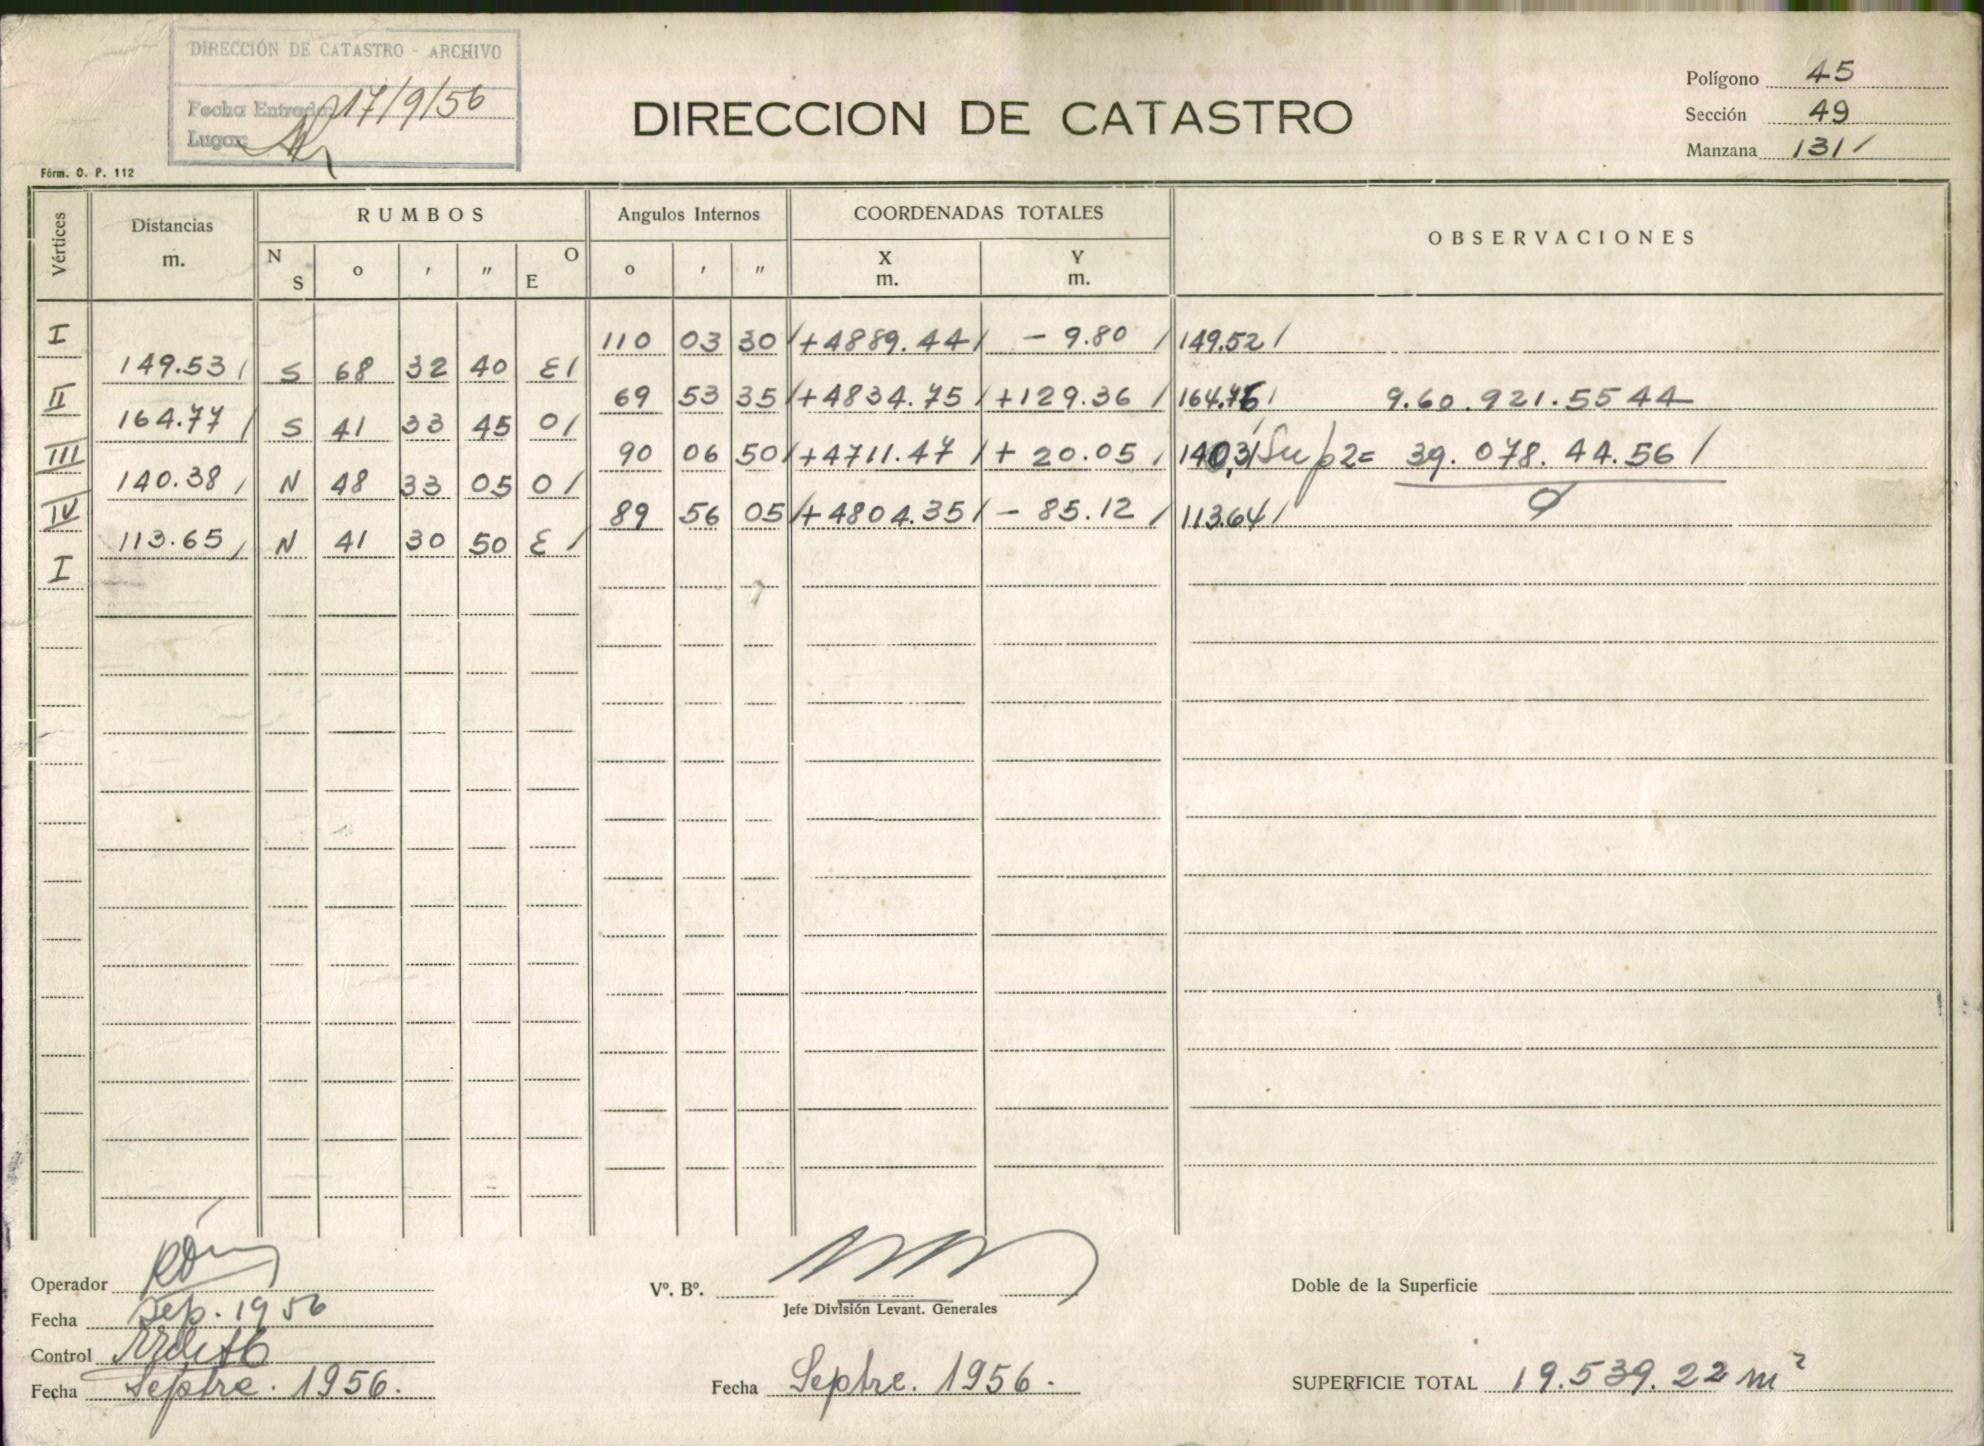 DIRECCIÓN DE CATASTRO - ARCHIVO
Fecha Entrada: 17/9/56
Lugar:
DIRECCION DE CATASTRO
Polígono 45
Sección 49
Manzana 131 /
Fórm. O. P. 112
Vértices Distancias m. RUMBOS Angulos Internos COORDENADAS TOTALES OBSERVACIONES
N S o ' " O E o ' " X m. Y m.
I 110 03 30 / +4889.44 / - 9.80 / 149.52 /
149.53 / S 68 32 40 E /
II 69 53 35 / +4834.75 / +129.36 / 164.76 / 9.60.921.5544
164.77 / S 41 33 45 O /
III 90 06 50 / +4711.47 / + 20.05 / 140.31 Sup 2= 39.078.44.56 /
140.38 / N 48 33 05 O /
IV 89 56 05 / +4804.35 / - 85.12 / 113.64 /
113.65 / N 41 30 50 E /
I
Operador
Fecha Sep. 1956
Control
Fecha Septre. 1956.
Vº. Bº.
Jefe División Levant. Generales
Fecha Septre. 1956.
Doble de la Superficie
SUPERFICIE TOTAL 19.539.22 m²